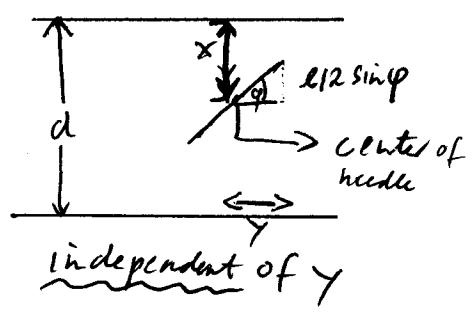 x
d
φ
l/2 sinφ
center of
needle
y
independent of y